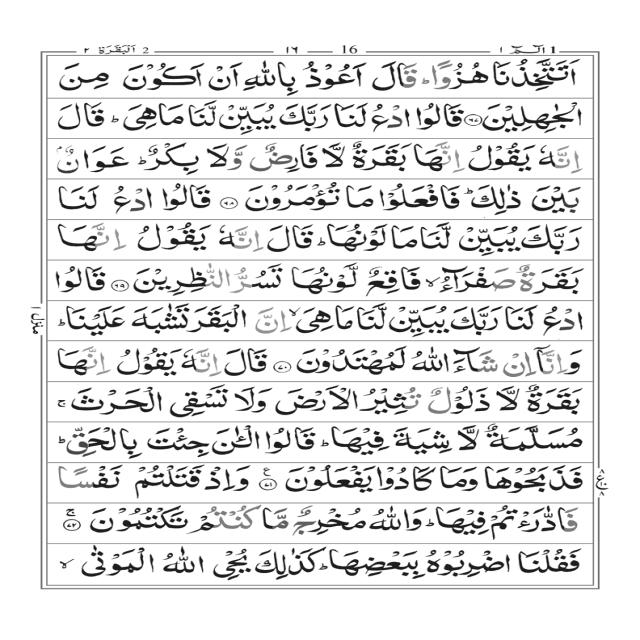 الٓمّٓ ١ 16 ١٦ 2 اَلْبَقَرَة ٢
اَتَتَّخِذُنَا هُزُوًا ؕ قَالَ اَعُوْذُ بِاللّٰهِ اَنْ اَكُوْنَ مِنَ
الْجٰهِلِيْنَ ﴿٦٧﴾ قَالُوا ادْعُ لَنَا رَبَّكَ يُبَيِّنْ لَّنَا مَا هِىَ ؕ قَالَ
اِنَّهٗ يَقُوْلُ اِنَّهَا بَقَرَةٌ لَّا فَارِضٌ وَّلَا بِكْرٌ ؕ عَوَانٌۢ
بَيْنَ ذٰلِكَ ؕ فَافْعَلُوْا مَا تُؤْمَرُوْنَ ﴿٦٨﴾ قَالُوا ادْعُ لَنَا
رَبَّكَ يُبَيِّنْ لَّنَا مَا لَوْنُهَا ؕ قَالَ اِنَّهٗ يَقُوْلُ اِنَّهَا
بَقَرَةٌ صَفْرَآءُ ۙ فَاقِعٌ لَّوْنُهَا تَسُرُّ النّٰظِرِيْنَ ﴿٦٩﴾ قَالُوا
ادْعُ لَنَا رَبَّكَ يُبَيِّنْ لَّنَا مَا هِىَ ۙ اِنَّ الْبَقَرَ تَشٰبَهَ عَلَيْنَا ؕ
وَاِنَّاۤ اِنْ شَآءَ اللّٰهُ لَمُهْتَدُوْنَ ﴿٧٠﴾ قَالَ اِنَّهٗ يَقُوْلُ اِنَّهَا
بَقَرَةٌ لَّا ذَلُوْلٌ تُثِيْرُ الْاَرْضَ وَلَا تَسْقِى الْحَرْثَ ۚ
مُسَلَّمَةٌ لَّا شِيَةَ فِيْهَا ؕ قَالُوا الْـٰٔنَ جِئْتَ بِالْحَقِّ ؕ
فَذَبَحُوْهَا وَمَا كَادُوْا يَفْعَلُوْنَ ﴿٧١﴾ وَاِذْ قَتَلْتُمْ نَفْسًا
فَادّٰرَءْتُمْ فِيْهَا ؕ وَاللّٰهُ مُخْرِجٌ مَّا كُنْتُمْ تَكْتُمُوْنَ ۚ﴿٧٢﴾
فَقُلْنَا اضْرِبُوْهُ بِبَعْضِهَا ؕ كَذٰلِكَ يُحْىِ اللّٰهُ الْمَوْتٰى ۙ
منزل ١